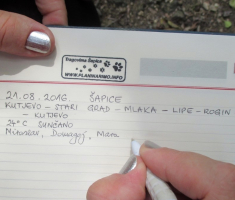 Tragovima Šapica
WWW.PLANINARIMO.INFO
21.08.2016. ŠAPICE
KUTJEVO - STARI GRAD - MLAKA - LIPE - ROGIN
- KUTJEVO
24°C SUNČANO
Miroslav, Domagoj, Mara